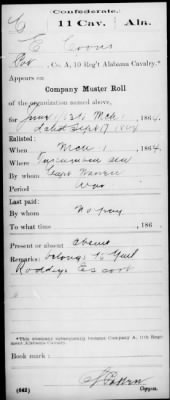 Confederate.
C 11 Cav. Ala.
E
Pvt, Co. A, 10 Reg't Alabama Cavalry.*
Appears on
Company Muster Roll
of the organization named above,
for 186
dated Sept 17, 1864
Enlisted:
When Mch 1, 1864.
Where Tuscumbia
By whom Capt Warren
Period War
Last paid:
By whom No pay
To what time , 186 .
Present or absent Absent
Remarks: belongs to Genl
Roddeys Escort
*This company subsequently became Company A, 11th Regiment Alabama Cavalry.
Book mark:
(642) Copyist.